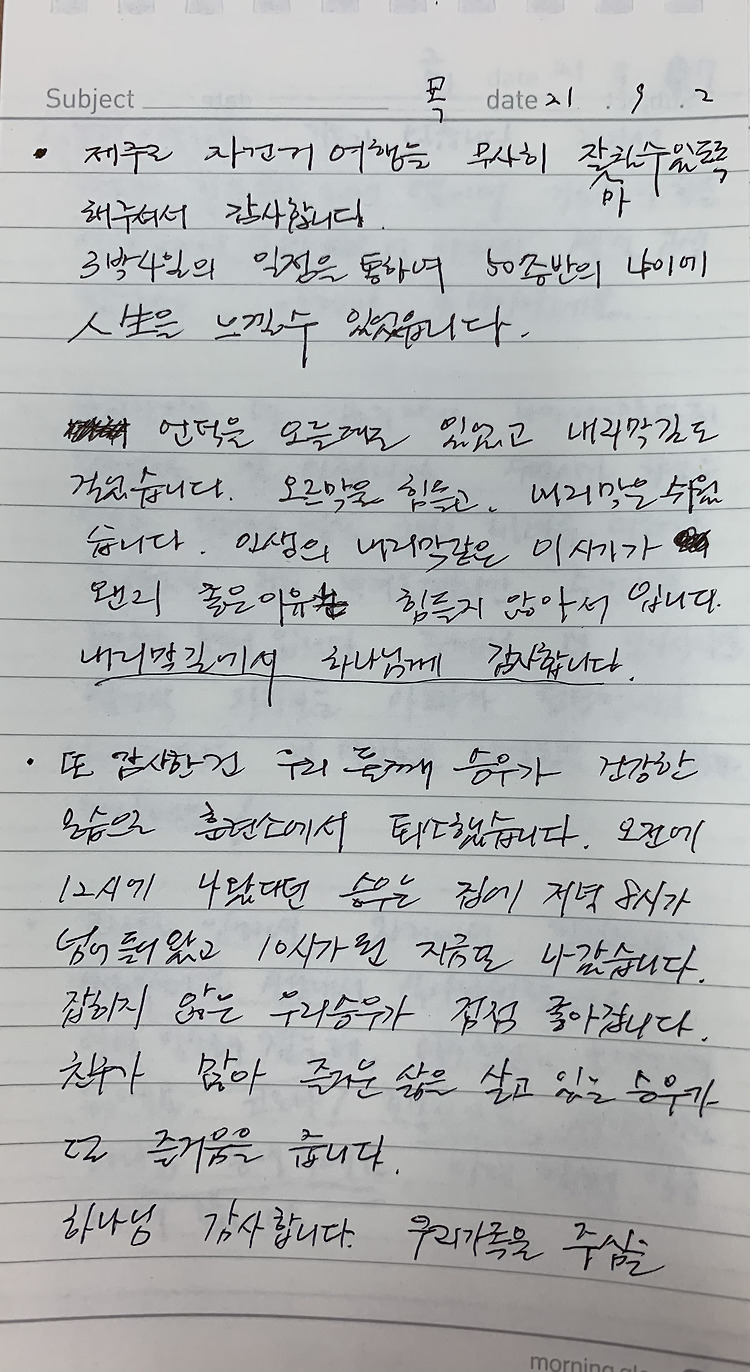 Subject 목 date 21 . 9 . 2
• 제주도 자전거 여행을 무사히 잘 마칠수있도록
해주셔서 감사합니다.
3박4일의 일정을 통하여 50중반의 나이에
人生을 느낄수 있었습니다.
언덕을 오를때도 있었고 내리막길도
걸었습니다. 오르막은 힘들고, 내리막은 쉬웠
습니다. 인생의 내리막같은 이시기가
왠지 좋은이유는 힘들지 않아서 입니다.
내리막길에서 하나님께 감사합니다.
• 또 감사한건 우리 둘째 승우가 건강한
모습으로 훈련소에서 퇴소했습니다. 오전에
12시에 나왔다던 승우는 집에 저녁 8시가
넘어 들어왔고 10시가된 지금도 나갔습니다.
잡히지 않는 우리승우가 점점 좋아집니다.
친구가 많아 즐거운 삶을 살고 있는 승우가
더 즐거움을 줍니다.
하나님 감사합니다. 우리가족을 주심을
morning